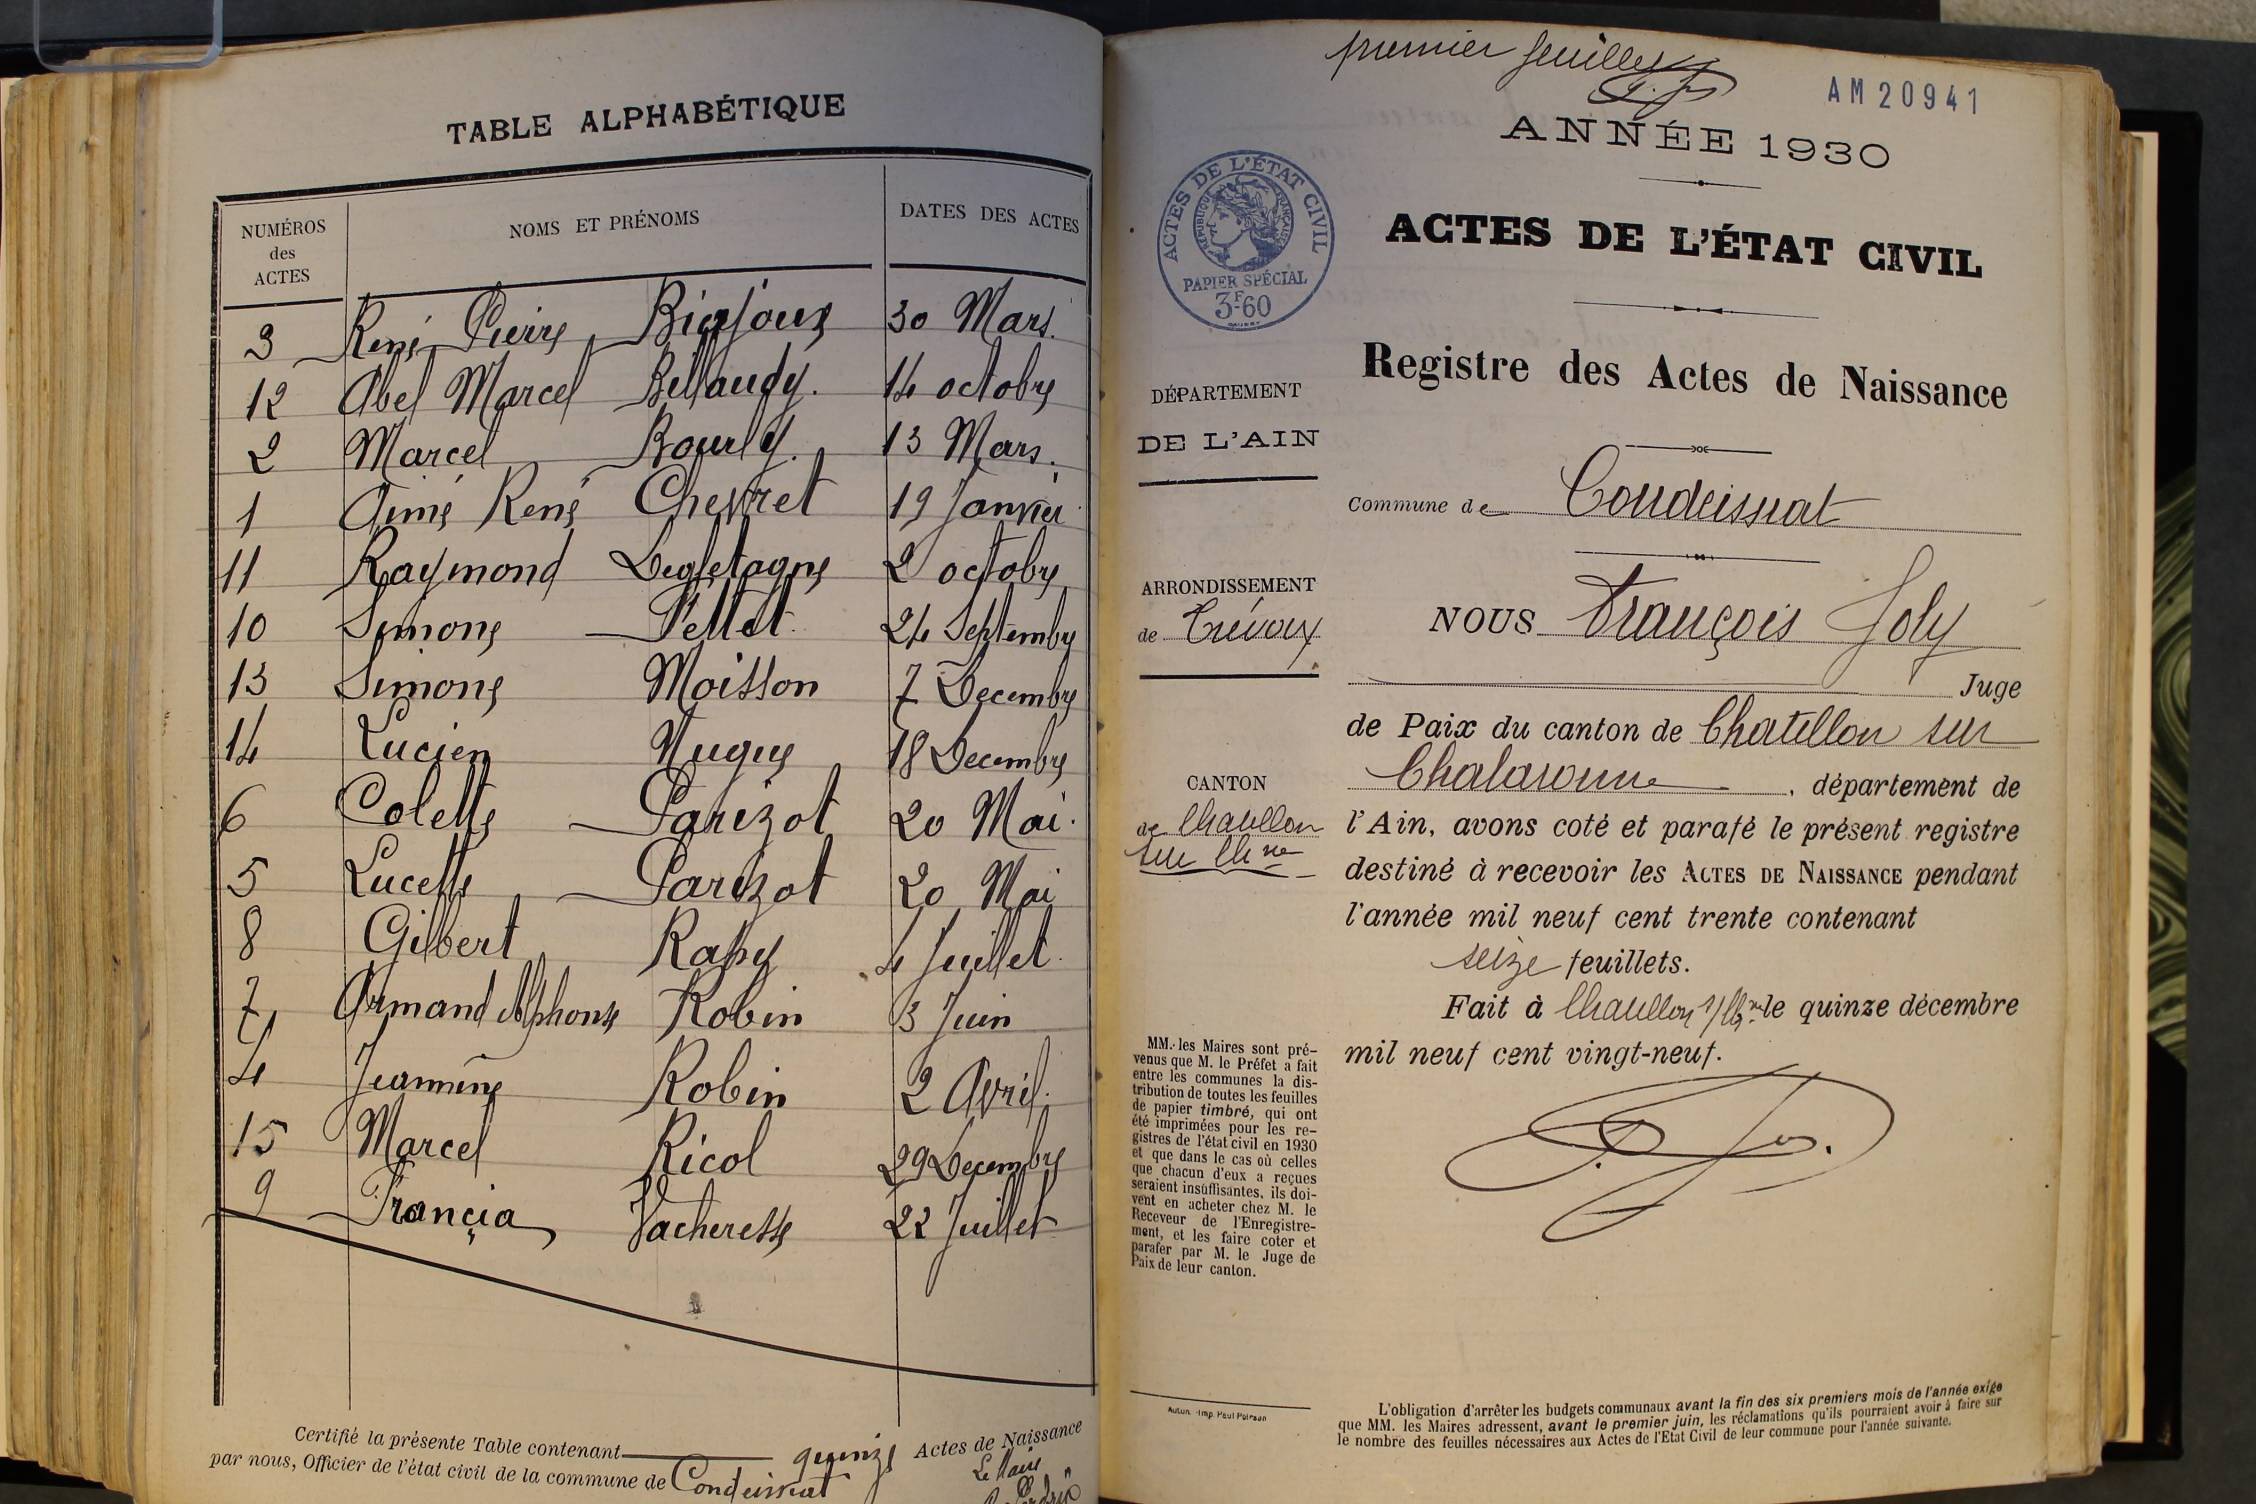 TABLE ALPHABÉTIQUE
NUMÉROS des ACTES NOMS ET PRÉNOMS DATES DES ACTES
3 René Pierre 30 Mars.
12 Abel Marcel Billaudy. 14 octobre
2 Marcel Bourly. 13 Mars.
1 Aimé René Chevret 19 Janvier
11 Raymond 2 octobre
10 Simone Pellet. 24 Septembre
13 Simone Moisson 7 Decembre
14 Lucien Nugue 18 Decembre
6 Colette Parizot 20 Mai.
5 Lucette Parizot 20 Mai
8 Gilbert Rapy 4 Juillet.
7 Armand Alphonse Robin 3 Juin
4 Jeannine Robin 2 Avril.
15 Marcel Ricol 29 Decembre
9 Francia Vacheresse 22 Juillet
Certifié la présente Table contenant quinze Actes de Naissance
par nous, Officier de l'état civil de la commune de Condeissiat
Le Maire
premier feuillet
AM20941
ANNÉE 1930
ACTES DE L'ÉTAT CIVIL
RÉPUBLIQUE FRANÇAISE
PAPIER SPÉCIAL
3F-60
ACTES DE L'ÉTAT CIVIL
Registre des Actes de Naissance
DÉPARTEMENT
DE L'AIN
Commune de Condeissiat
ARRONDISSEMENT
de Trévoux
NOUS François Joly
Juge
de Paix du canton de Chatillon sur
Chalaronne, département de
CANTON
de Chatillon
sur Chne
l'Ain, avons coté et parafé le présent registre
destiné à recevoir les ACTES DE NAISSANCE pendant
l'année mil neuf cent trente contenant
seize feuillets.
Fait à Chatillon s/Chne le quinze décembre
mil neuf cent vingt-neuf.
MM. les Maires sont pré-
venus que M. le Préfet a fait
entre les communes la dis-
tribution de toutes les feuilles
de papier timbré, qui ont
été imprimées pour les re-
gistres de l'état civil en 1930
et que dans le cas où celles
que chacun d'eux a reçues
seraient insuffisantes, ils doi-
vent en acheter chez M. le
Receveur de l'Enregistre-
ment, et les faire coter et
parafer par M. le Juge de
Paix de leur canton.
Autun. - Imp. Paul Poirson
L'obligation d'arrêter les budgets communaux avant la fin des six premiers mois de l'année exige
que MM. les Maires adressent, avant le premier juin, les réclamations qu'ils pourraient avoir à faire sur
le nombre des feuilles nécessaires aux Actes de l'Etat Civil de leur commune pour l'année suivante.